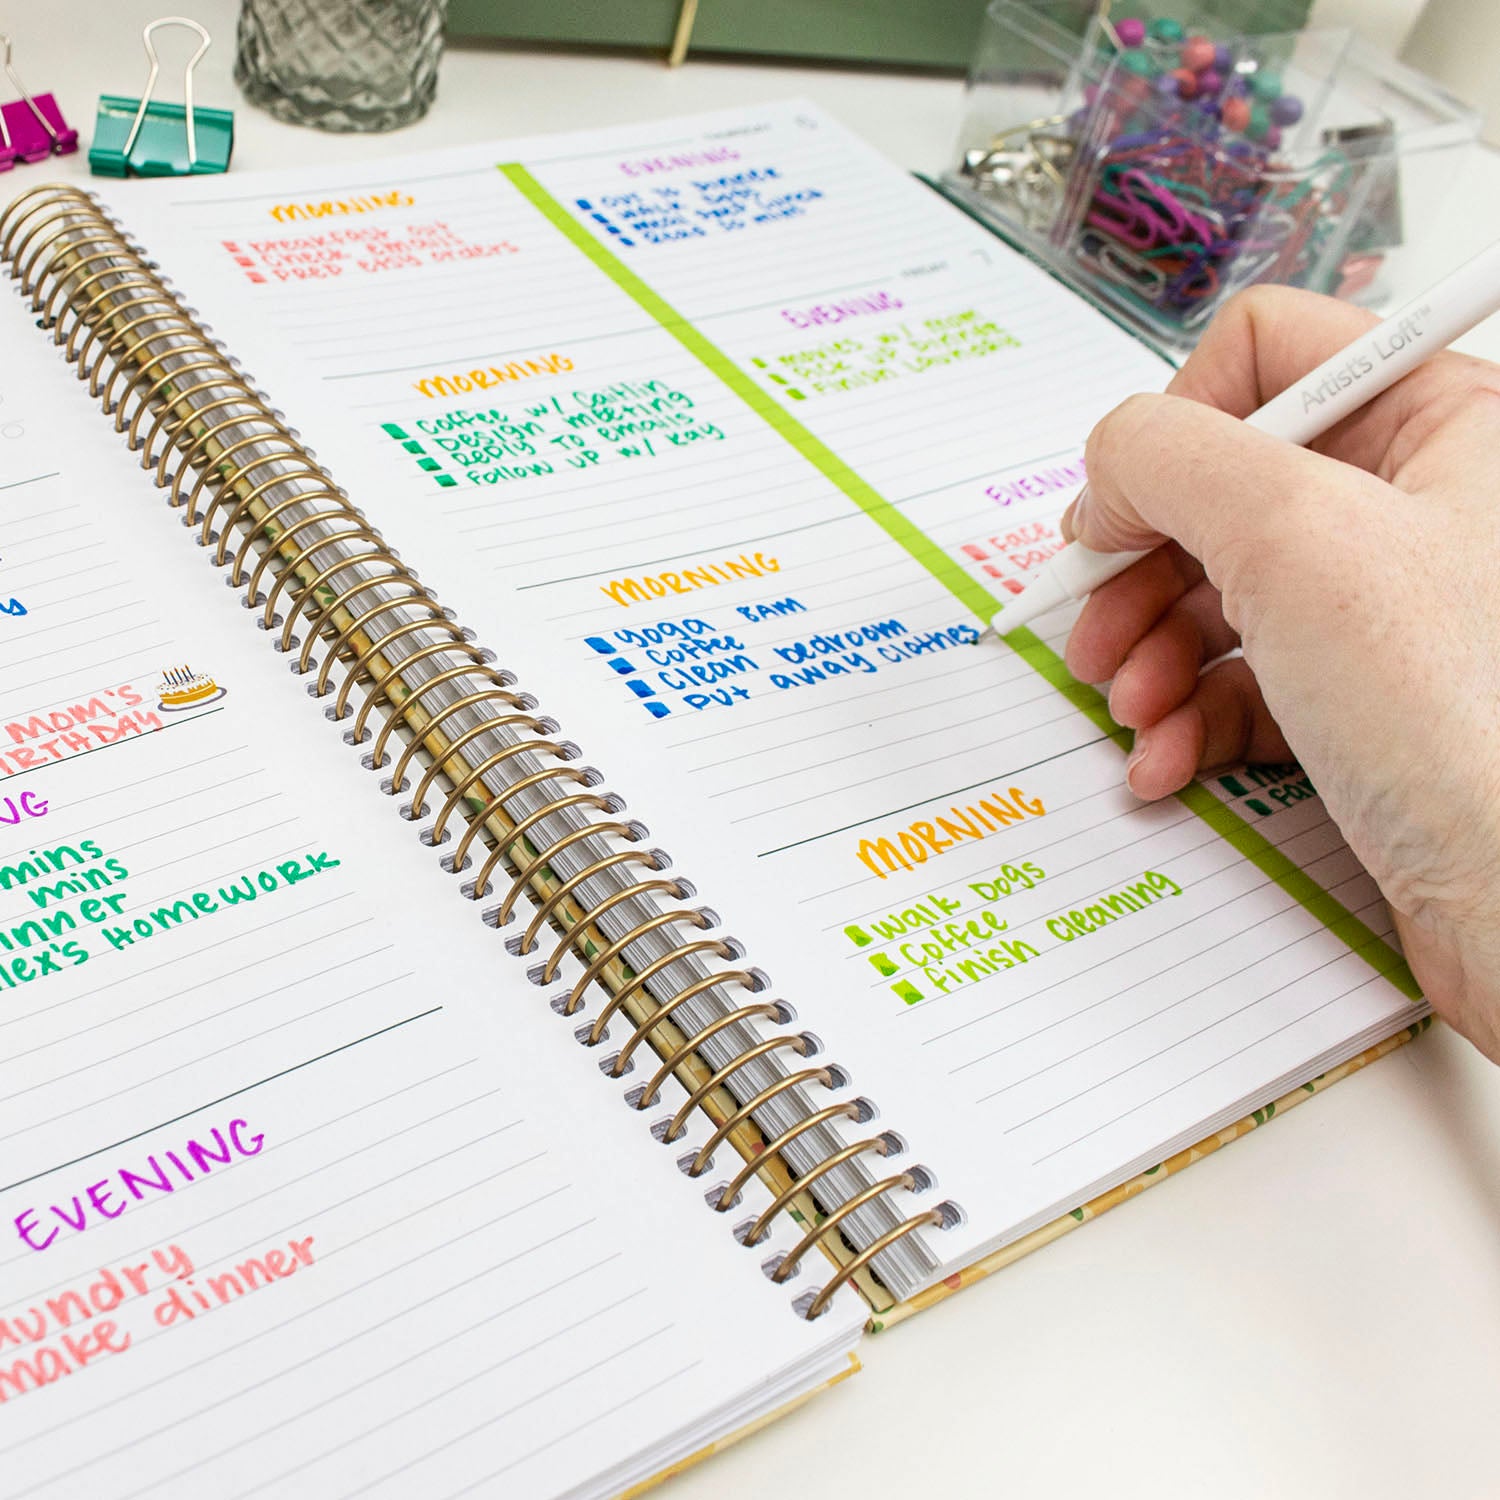 THURSDAY 6
MORNING
breakfast out
check emails
prep etsy orders
EVENING
out to dinner
walk dogs
meal prep lunch
Read 30 mins
FRIDAY 7
MORNING
Coffee w/ Caitlin
Design meeting
Reply to emails
Follow up w/ Kay
EVENING
movies w/ mom
Pick up dinner
Finish laundry
MORNING
yoga 8AM
coffee
Clean bedroom
put away clothes
EVENING
FACE
MORNING
walk Dogs
Coffee
finish cleaning
MOM'S
mins
mins
Homework
EVENING
make dinner
Artist's Loft™